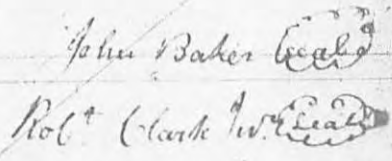 John Baker (seal)
Robt Clark Junr (seal)